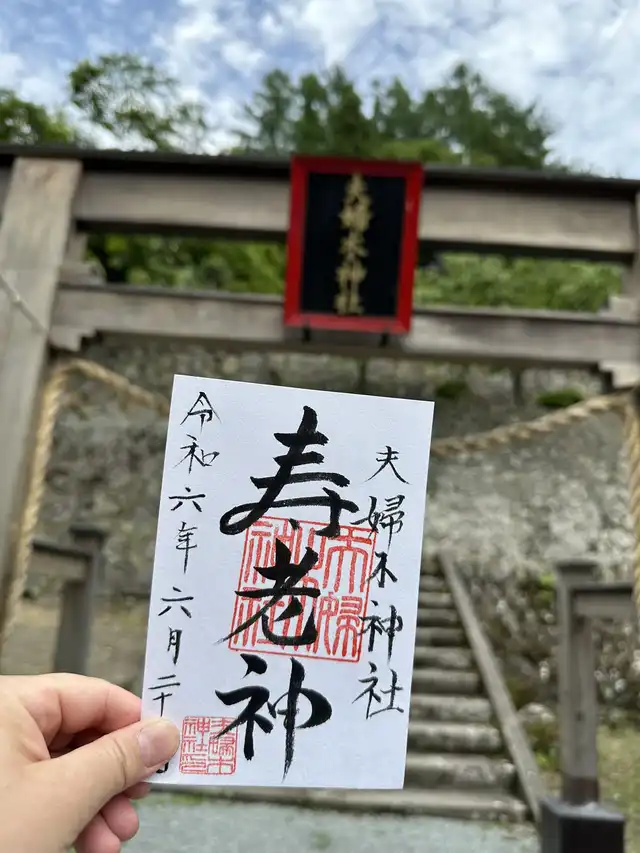 夫婦木神社
夫婦木神社
寿老神
令和六年六月二十
夫婦木神社